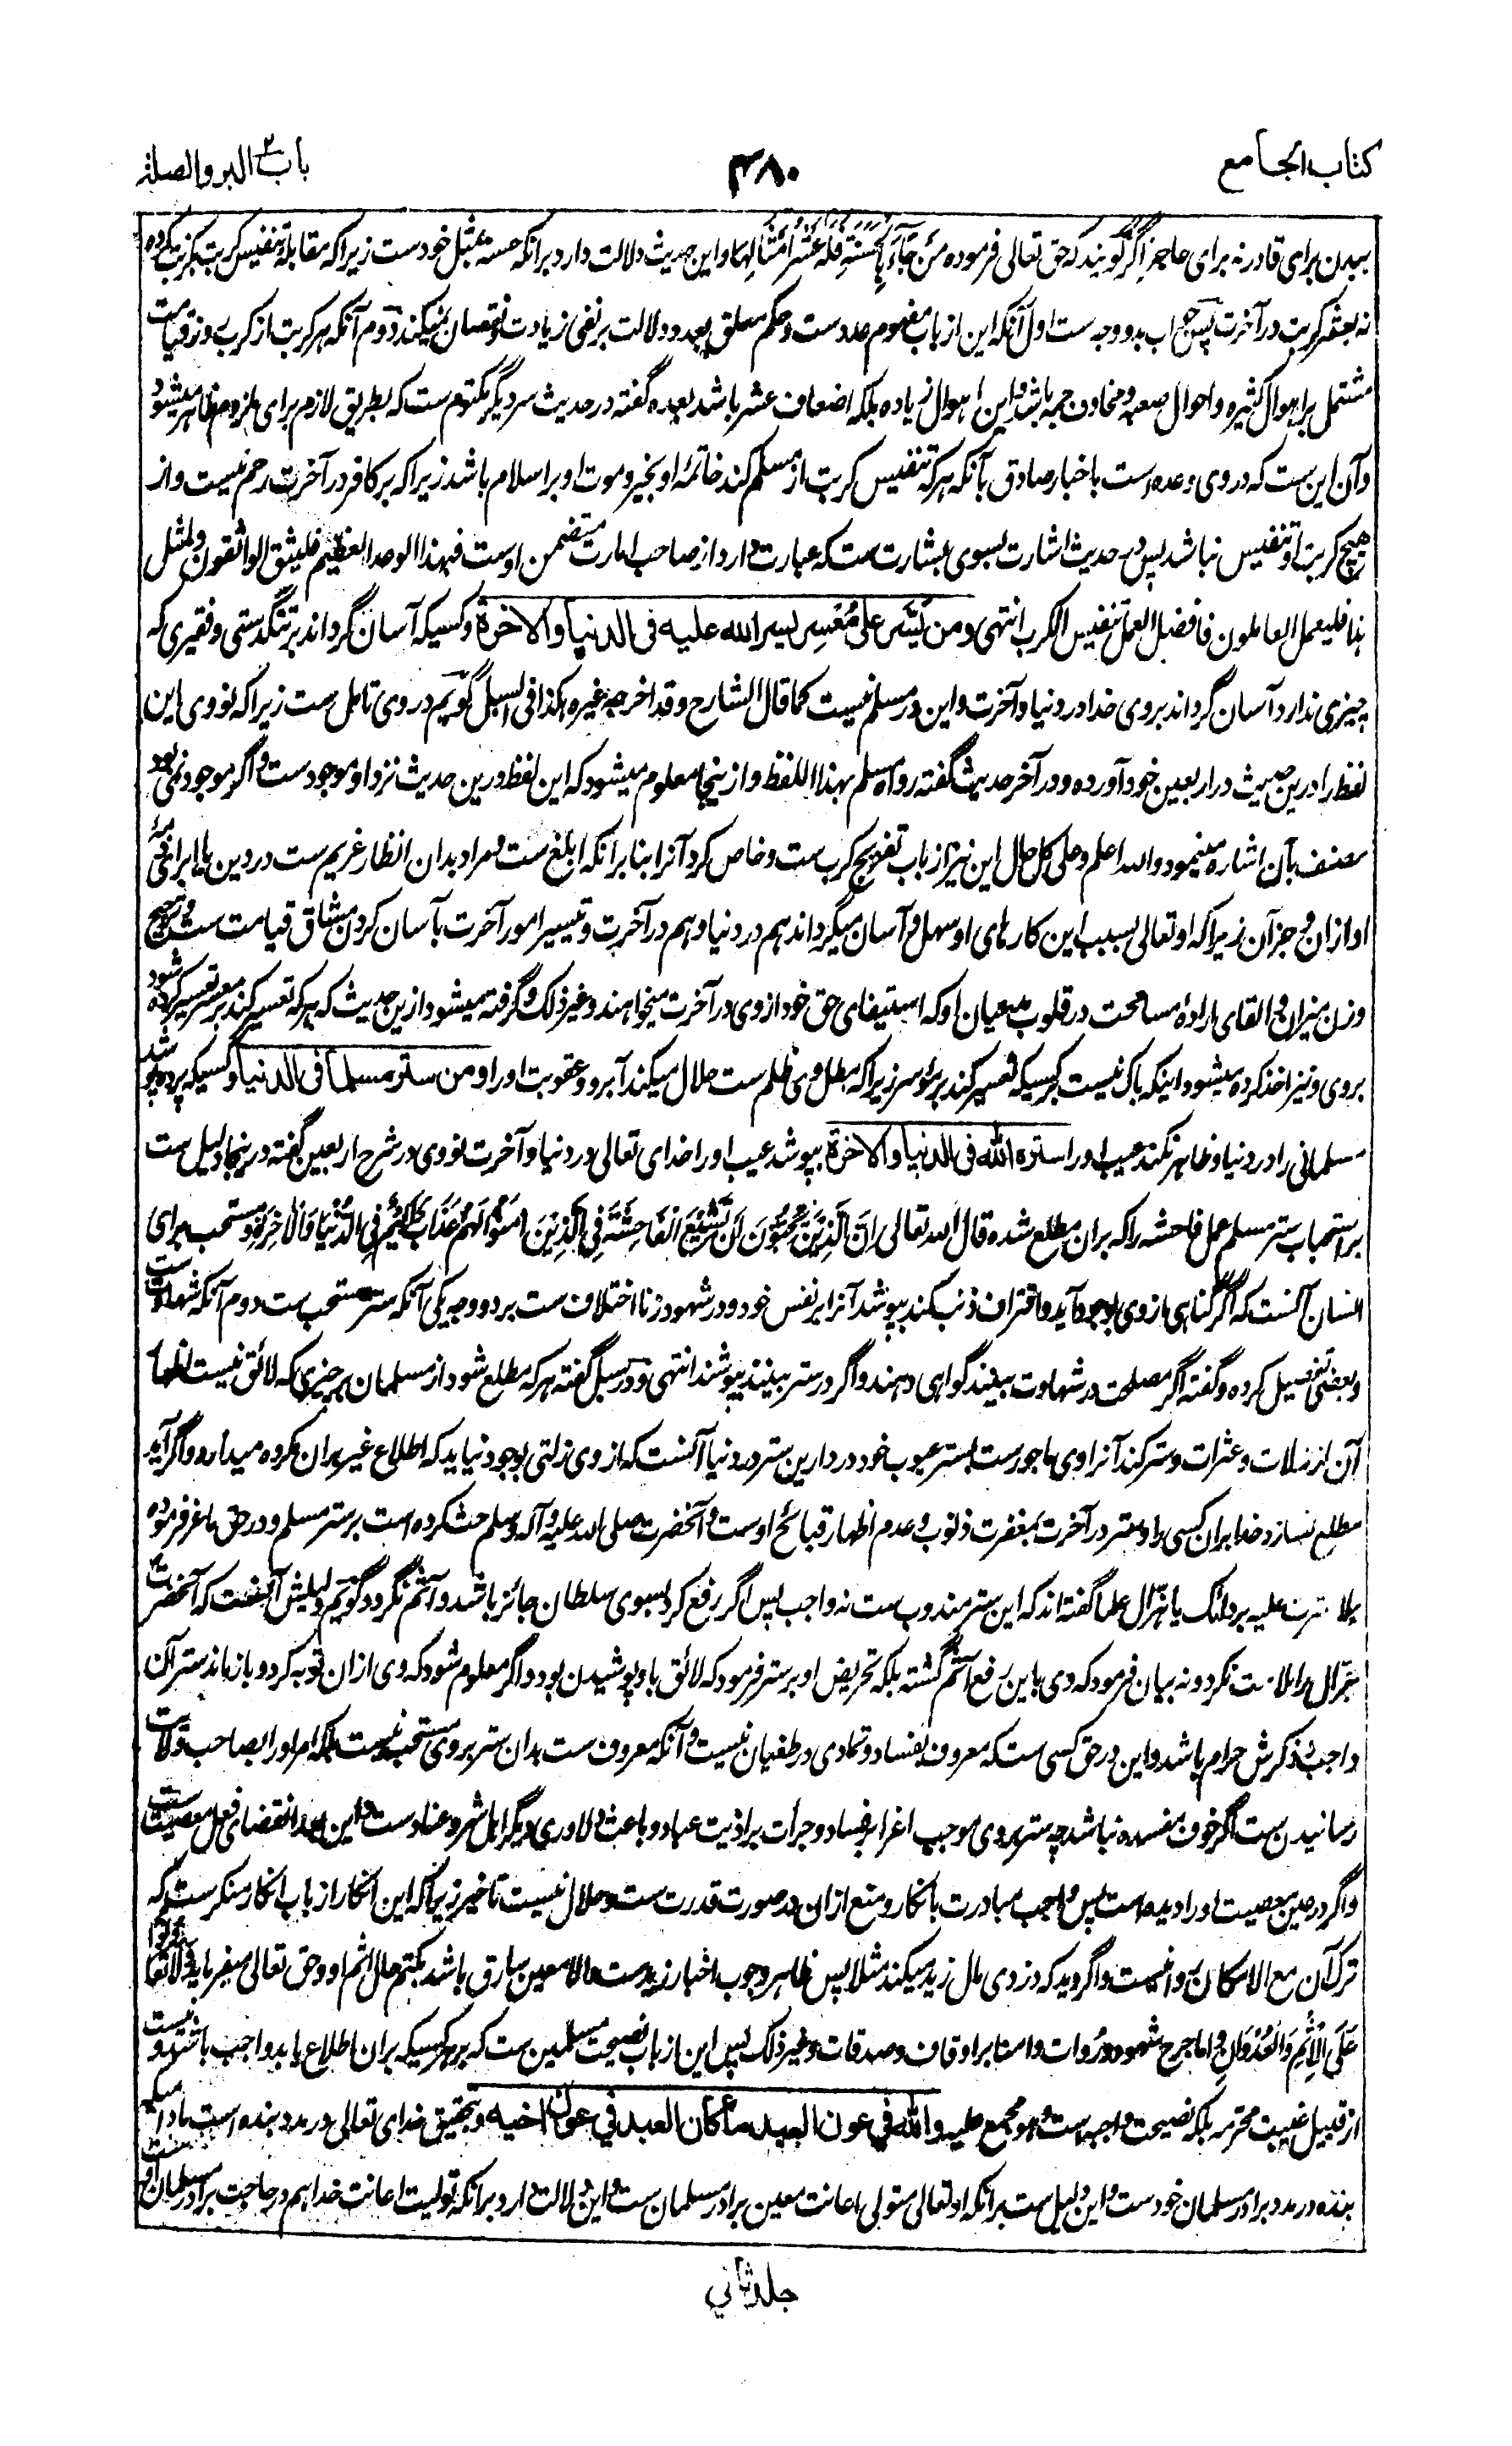 کتاب الجامع
۴۸۰
باب البر والصلة
ببدن برای قادر نه برای عاجز اگر گویند که حق تعالی فرموده مَنْ جَآءَ بِالْحَسَنَةِ فَلَهٗ عَشْرُ اَمْثَالِهَا و این حدیث دلالت دارد برانکه حسنه بمثل خودست زیراکه مقابله تنفیس کربت بکربت کرده
نه بعشر کربت در آخرت پس جواب بدو وجه ست اول آنکه این از باب مفهوم عددست و حکم معلق بعدد دلالت بر نفی زیادت و نقصان نمیکند دوم آنکه هر کربت از کرب روز قیامت
مشتمل بر اهوال کثیره و احوال صعبه و مخاوف جمه باشد و این اهوال زیاده بلکه اضعاف عشر باشد بعده گفته در حدیث سر دیگر مکتوم ست که بطریق لازم برای ملزوم ظاهر میشود
و آن این ست که در وی وعده است باخبار صادق بآنکه هر که تنفیس کربت از مسلم کند خاتمۂ او بخیر و موت او بر اسلام باشد زیراکه بر کافر در آخرت رحم نیست و از
هیچ کربت او تنفیس نباشد پس در حدیث اشارت بسوی بشارت ست که عبارت وارد از صاحب امارت متضمن اوست فهذا الوعد العظیم فلیثق الواثقون ولمثل
هذا فلیعمل العاملون فافضل العمل تنفیس الکرب انتهی ومن یسّر علی مُعْسِر یسر الله علیه فی الدنیا والآخرة و کسیکه آسان گرداند بر تنگدستی و فقیری که
چیزی ندارد آسان گرداند بر وی خدا در دنیا و آخرت و این در مسلم نیست کما قال الشارح وقد اخرجه غیره هکذا فی السبل گویم در وی تامل ست زیراکه نووی این
لفظ را درین حدیث در اربعین خود آورده و در آخر حدیث گفته رواه مسلم بهذا اللفظ و ازینجا معلوم میشود که این لفظ درین حدیث نزد او موجود ست و اگر موجود نمی بود
مصنف بآن اشاره مینمود والله اعلم وعلی کل حال این نیز از باب تفریج کرب ست و خاص کرد آنرا بنا برانکه ابلغ ست و مراد بدان انظار غریم ست در دین یا ابرای ذمۂ
او ازان و جز آن زیراکه او تعالی بسبب این کارهای او سهل و آسان میگرداند هم در دنیا و هم در آخرت و تیسیر امور آخرت بآسان کردن مشاق قیامت ست و ترجیح
وزن میزان و القای ارادۂ مسامحت در قلوب مدعیان او که استیفای حق خود از وی در آخرت میخواهند و غیر ذلک و گرفته میشود ازین حدیث که هر که تعسیر کند بر معسر تعسیر کرده شود
بروی و نیز اخذ کرده میشود اینکه باک نیست بر کسیکه تعسیر کند بر موسر زیراکه مطل وی ظلم ست حلال میکند آبرو و عقوبت او را ومن ستر مسلما فی الدنیا و کسیکه پرده پوشد
مسلمانی را در دنیا و ظاهر نکند عیب او را ستره الله فی الدنیا والآخرة بپوشد عیب او را خدای تعالی در دنیا و آخرت نووی در شرح اربعین گفته درینجا دلیل ست
بر استحباب ستر مسلم عمل فاحشه را که بران مطلع شده قال الله تعالی اِنَّ الَّذِیْنَ یُحِبُّوْنَ اَنْ تَشِیْعَ الْفَاحِشَةُ فِی الَّذِیْنَ اٰمَنُوْا لَهُمْ عَذَابٌ اَلِیْمٌ فِی الدُّنْیَا وَالْاٰخِرَةِ و مستحب برای
انسان آنست که اگر گناهی از وی بوجود آید و اقتراف ذنب کند بپوشد آنرا بر نفس خود و در شهود زنا اختلاف ست بر دو وجه یکی آنکه ستر مستحب ست دوم آنکه شهادت
و بعضی تفصیل کرده و گفته اگر مصلحت در شهادت بینند گواهی دهند و اگر در ستر بینند بپوشند انتهی و در سبل گفته هر که مطلع شود از مسلمان بر چیزی که لائق نیست اظهار
آن از زلات و عثرات و ستر کند آنرا وی ماجورست بستر عیوب خود در دارین ستر در دنیا آنست که از وی زلتی بوجود نیاید که اطلاع غیر بران مکروه میدارد و اگر آید
مطلع نسازد خدا بران کسی را و ستر در آخرت بمغفرت ذنوب و عدم اظهار قبائح اوست و آنحضرت صلی الله علیه و آله وسلم حث کرده است بر ستر مسلم و در حق ماعز فرموده
هلا سترت علیه بردائک یا هزال علما گفته اند که این ستر مندوب ست نه واجب پس اگر رفع کرد بسوی سلطان جائز باشد و آثم نگردد گویم دلیلش آنست که آنحضرت
هزال را ملامت نکرد و نه بیان فرمود که وی باین رفع آثم گشته بلکه تحریض او بر ستر فرمود که لائق باو پوشیدن بود و اگر معلوم شود که وی ازان توبه کرد و باز ماند ستر آن
واجب و ذکرش حرام باشد و این در حق کسی ست که معروف بفساد و تمادی در طغیان نیست و آنکه معروف ست بدان ستر بر وی مستحب نیست بلکه امر او را بصاحب ولایت
رسانیدن ست اگر خوف مفسده نباشد چه ستر بر وی موجب اغرا بفساد و جرأت بر اذیت عباد و باعث دلاوری دیگر اهل شر و عناد ست و این بعد انقضای فعل معصیت ست
و اگر در عین معصیت او را دیده است پس واجب مبادرت بانکار و منع ازان در صورت قدرت ست و حلال نیست تاخیر زیراکه این انکار از باب انکار منکر ست که
ترک آن مع الامکان روا نیست و اگر دید که دزدی مال زید میکند مثلا پس ظاهر وجوب اخبار زیدست والا معین سارق باشد بکتم مال اثم او و حق تعالی میفرماید وَلَا تَعَاوَنُوْا
عَلَی الْاِثْمِ وَالْعُدْوَانِ و اما جرح شهود و رُوات و امنا بر اوقاف و صدقات و غیر ذلک پس این از باب نصیحت مسلمین ست که بر هر کسیکه بران اطلاع یابد واجب باشد و نیست
از قبیل غیبت محرمه بلکه نصیحت واجبه است وهو مجمع علیه والله فی عون العبد ما کان العبد فی عون اخیه و بتحقیق خدای تعالی در مدد بنده است مادامیکه
بنده در مدد برادر مسلمان خودست و این دلیل ست برانکه او تعالی متولی اعانت معین برادر مسلمان ست و این دلالت دارد برانکه تولیت اعانت خدا هم در حاجت برادر مسلمان
جلد ثانی